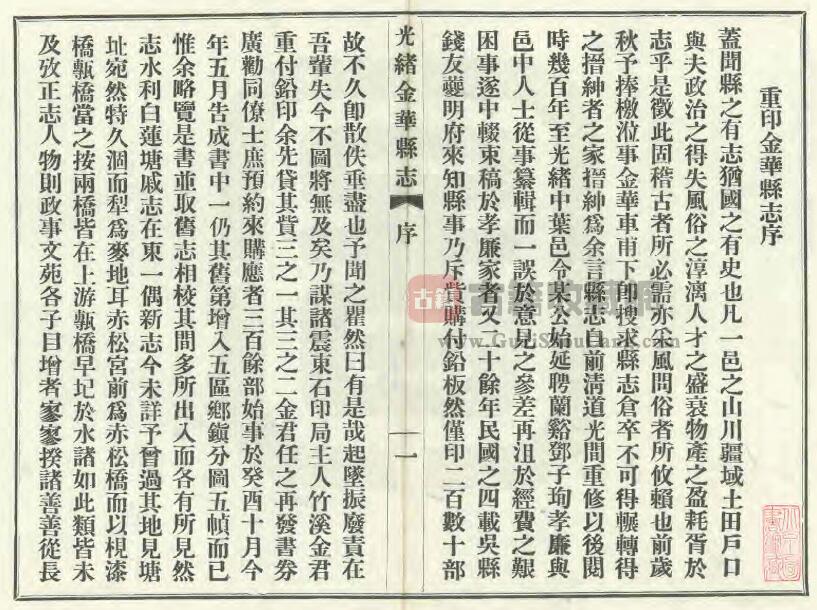 重印金華縣志序
蓋聞縣之有志猶國之有史也凡一邑之山川疆域土田戶口
與夫政治之得失風俗之淳漓人才之盛衰物產之盈耗胥於
志乎是徵此固稽古者所必需亦采風問俗者所攸賴也前歲
秋予捧檄涖事金華車甫下卽搜求縣志倉卒不可得輾轉得
之搢紳者之家搢紳爲余言縣志自前清道光間重修以後閱
時幾百年至光緒中葉邑令某公始延聘蘭谿鄧子珣孝廉與
邑中人士從事纂輯而一誤於意見之參差再沮於經費之艱
困事遂中輟束稿於孝廉家者又二十餘年民國之四載吳縣
錢友夔明府來知縣事乃斥貲購付鉛板然僅印二百數十部
光緒金華縣志
序
一
故不久卽散佚垂盡也予聞之瞿然曰有是哉起墜振廢責在
吾輩失今不圖將無及矣乃謀諸震東石印局主人竹溪金君
重付鉛印余先貸其貲三之一其三之二金君任之再發書券
廣勸同僚士庶預約來購應者三百餘部始事於癸酉十月今
年五月告成書中一仍其舊第增入五區鄉鎮分圖五幀而已
惟余略覽是書並取舊志相校其間多所出入而各有所見然
志水利白蓮塘戚志在東一偶新志今未詳予曾過其地見塘
址宛然特久涸而犁爲麥地耳赤松宮前爲赤松橋而以梘漆
橋瓡橋當之按兩橋皆在上游瓡橋早圮於水諸如此類皆未
及攷正志人物則政事文苑各子目增者寥寥揆諸善善從長
古籍
www.GujiShuKuan.com